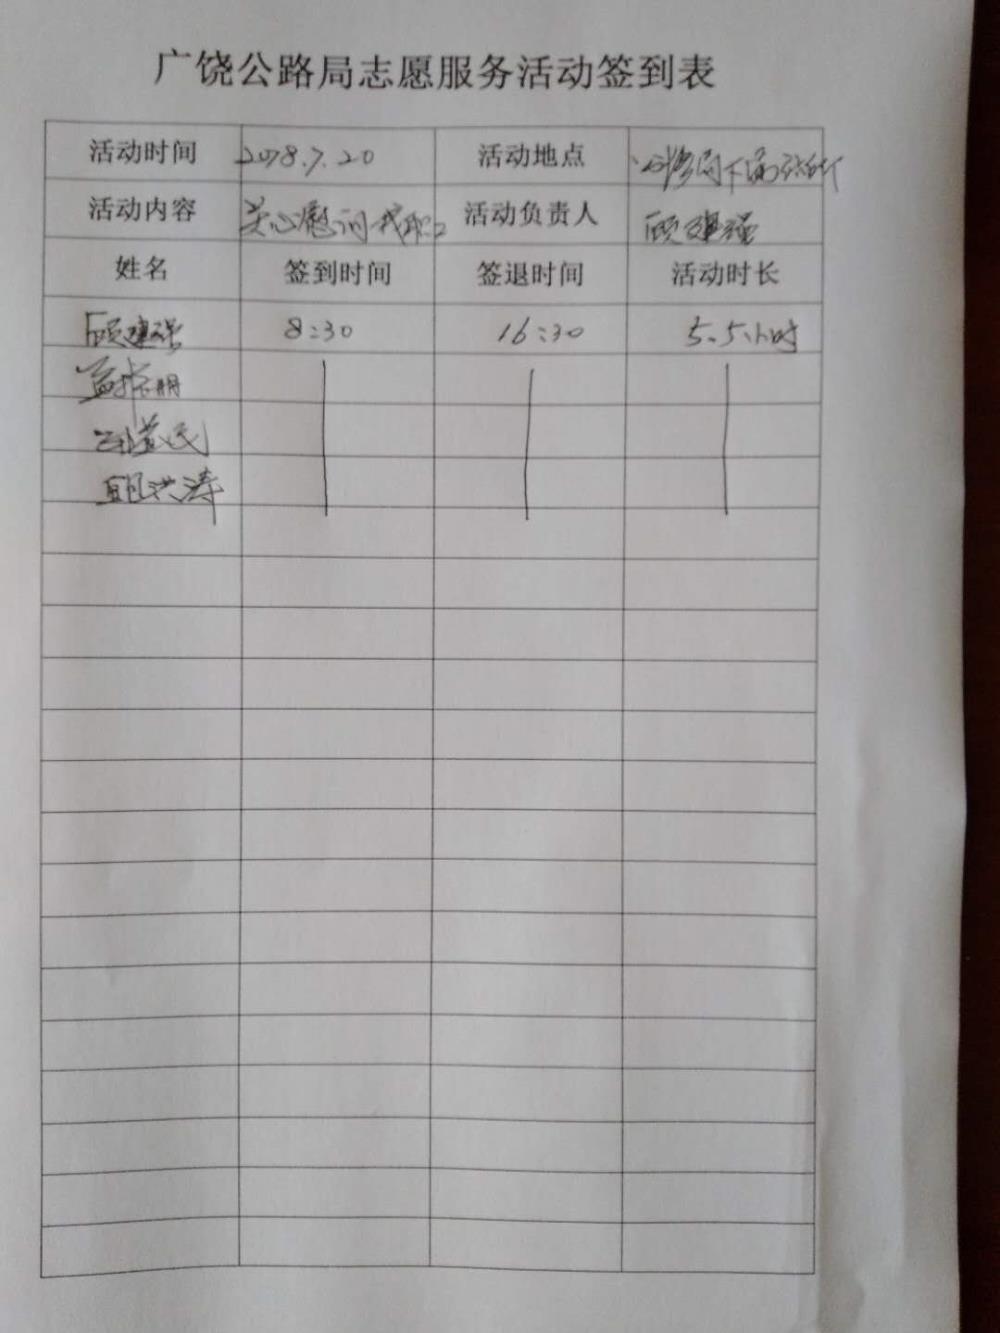 广饶公路局志愿服务活动签到表
活动时间 2018.7.20 活动地点
活动内容 关心慰问 职工 活动负责人 顾建强
姓名 签到时间 签退时间 活动时长
顾建强 8:30 16:30 5.5小时